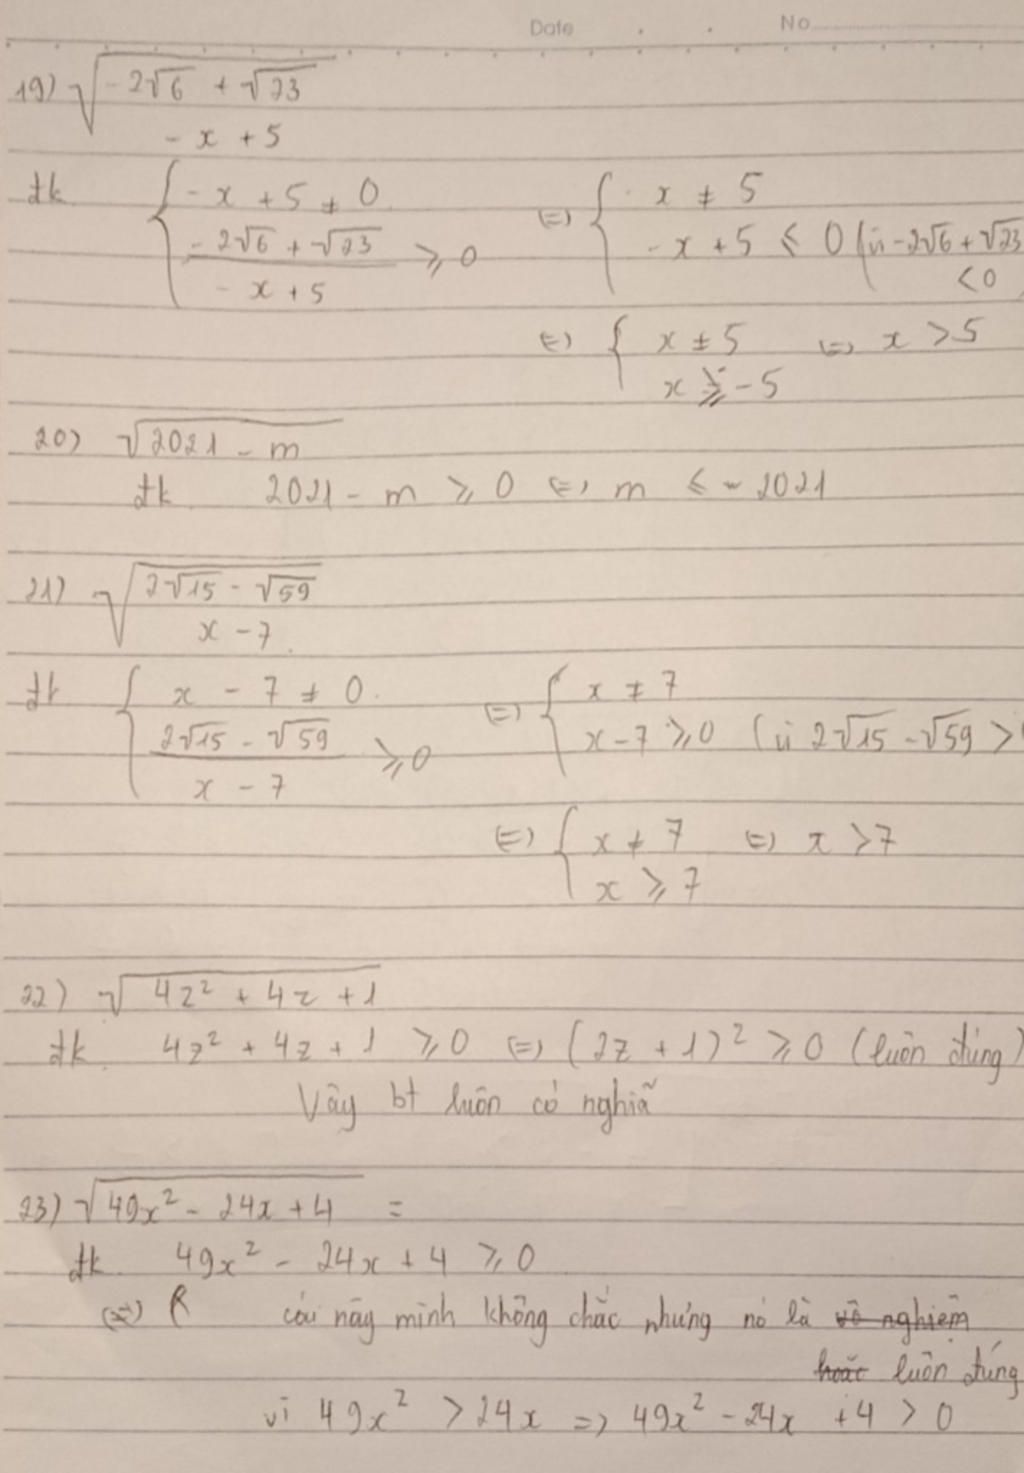 Date No
19) √((-2√6 + √23)/(-x + 5))
đk { -x + 5 ≠ 0 (=) { x ≠ 5
(-2√6 + √23)/(-x + 5) ⩾ 0 -x + 5 ⩽ 0 (vì -2√6 + √23 < 0
(=) { x ≠ 5 (=) x > 5
x ⩾ -5
20) √(2021 - m)
đk 2021 - m ⩾ 0 (=) m ⩽ - 2021
21) √((2√15 - √59)/(x - 7))
đk { x - 7 ≠ 0 (=) { x ≠ 7
(2√15 - √59)/(x - 7) ⩾ 0 x - 7 ⩾ 0 (vì 2√15 - √59 >
(=) { x ≠ 7 (=) x > 7
x ⩾ 7
22) √(4z² + 4z + 1)
đk 4z² + 4z + 1 ⩾ 0 (=) (2z + 1)² ⩾ 0 (luôn đúng)
Vậy bt luôn có nghiã
23) √(49x² - 24x + 4) =
đk 49x² - 24x + 4 ⩾ 0
(=) R cái này mình không chắc nhưng nó là vô nghiệm
hoặc luôn đúng
vì 49x² > 24x => 49x² - 24x + 4 > 0